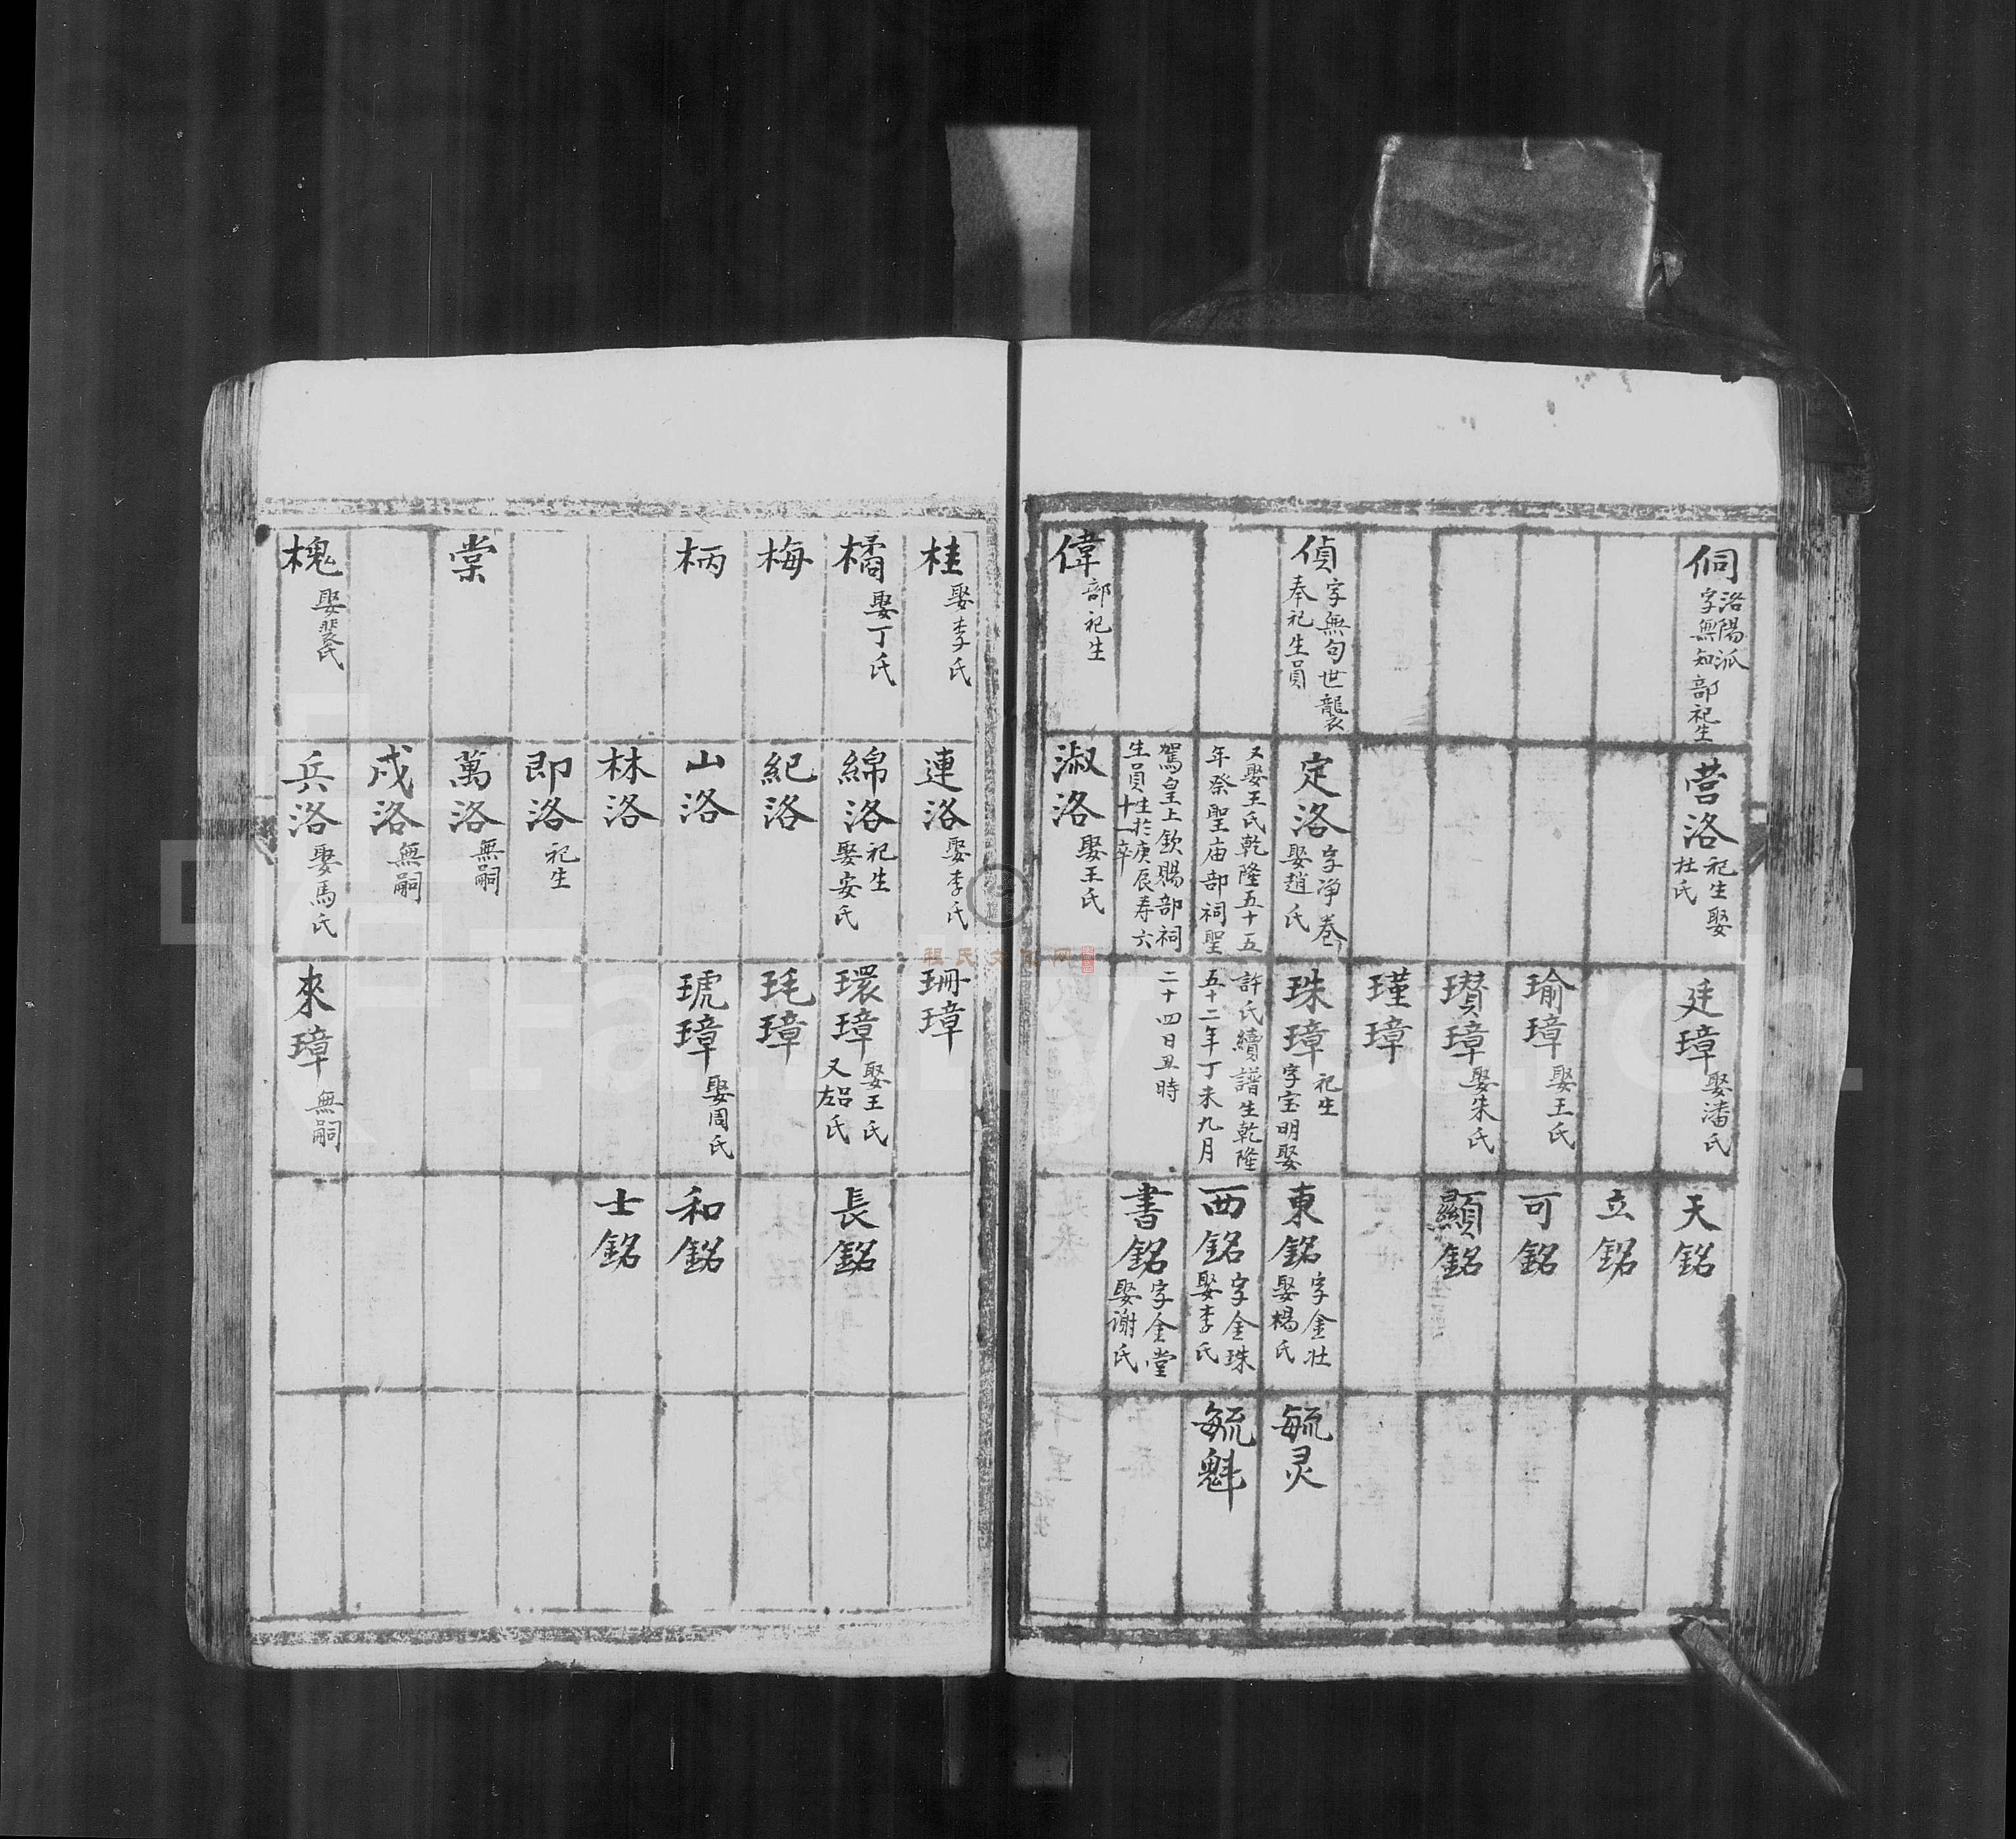 侗
洛陽派
字無知
部祀生
偵
字無句世襲
奉祀生員
偉
部祀生
营洛
祀生娶
杜氏
定洛
字净卷
娶趙氏
又娶王氏乾隆五十五
年祭聖庙部祠聖
駕皇上欽賜部祠
生員生於庚辰寿六
十一卒
淑洛
娶王氏
廷璋
娶潘氏
瑜璋
娶王氏
瓚璋
娶朱氏
瑾璋
珠璋
祀生
字宝明娶
許氏續譜生乾隆
五十二年丁未九月
二十四日丑時
天銘
立銘
可銘
顯銘
東銘
字金壮
娶楊氏
西銘
字金珠
娶李氏
書銘
字金堂
娶谢氏
毓灵
毓魁
桂
娶李氏
橘
娶丁氏
梅
柄
棠
槐
娶裴氏
連洛
娶李氏
綿洛
祀生
娶安氏
紀洛
山洛
林洛
即洛
祀生
萬洛
無嗣
戍洛
無嗣
兵洛
娶馬氏
珊璋
環璋
娶王氏
又左呂氏
玘璋
琥璋
娶周氏
來璋
無嗣
長銘
和銘
士銘
FamilySearch
程氏文化网